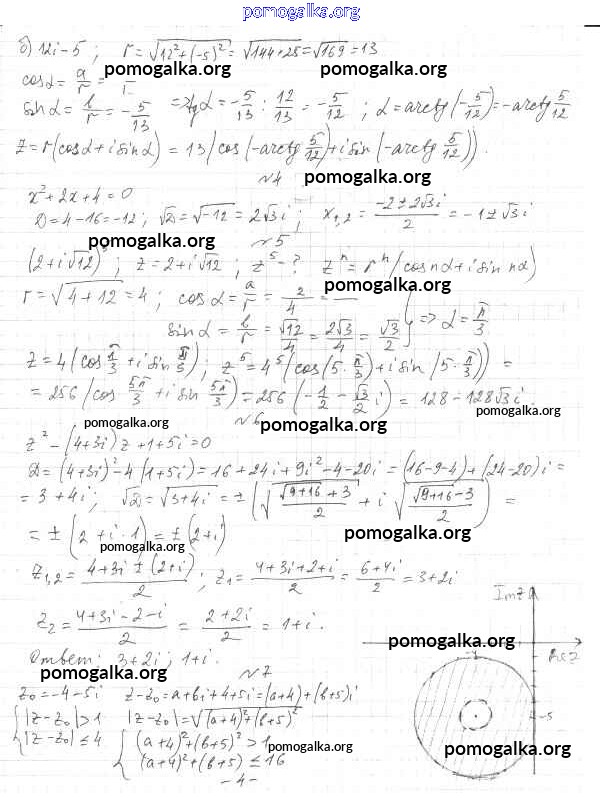 pomogalka.org
б) 12i-5 ; r = √(12²+(-5)²) = √(144+25) = √169 = 13
pomogalka.org pomogalka.org
cos α = a/r =
sin α = b/r = -5/13 => tg α = -5/13 : 12/13 = -5/12 ; α = arctg(-5/12) = -arctg 5/12
pomogalka.org pomogalka.org
z = r(cos α + i sin α) = 13(cos(-arctg 5/12) + i sin(-arctg 5/12)).
№4 pomogalka.org
x²+2x+4=0
D = 4-16 = -12; √D = √-12 = 2√3 i ; x₁,₂ = (-2 ± 2√3 i)/2 = -1 ± √3 i
pomogalka.org №5
(2+i√12)⁵ ; z = 2+i√12 ; z⁵ - ? zⁿ = rⁿ(cos nα + i sin nα)
pomogalka.org
r = √(4+12) = 4 ; cos α = a/r = 2/4 =
sin α = b/r = √12/4 = 2√3/4 = √3/2 } => α = π/3
z = 4(cos π/3 + i sin π/3); z⁵ = 4⁵(cos(5·π/3) + i sin(5·π/3)) =
= 256(cos 5π/3 + i sin 5π/3) = 256(-1/2 - √3/2 i) = 128 - 128√3 i.
pomogalka.org
pomogalka.org №6 pomogalka.org
z² - (4+3i)z + 1+5i = 0
D = (4+3i)² - 4(1+5i) = 16+24i+9i²-4-20i = (16-9-4)+(24-20)i =
= 3+4i; √D = √(3+4i) = ±(√((√(9+16)+3)/2) + i√((√(9+16)-3)/2)) =
= ±(2+i·1) = ±(2+i)
pomogalka.org pomogalka.org
z₁,₂ = (4+3i ± (2+i))/2 ; z₁ = (4+3i+2+i)/2 = (6+4i)/2 = 3+2i
z₂ = (4+3i-2-i)/2 = (2+2i)/2 = 1+i.
Im z
pomogalka.org
Re z
Ответ: 3+2i; 1+i.
-4
pomogalka.org №7 pomogalka.org
z₀ = -4-5i z-z₀ = a+bi+4+5i = (a+4)+(b+5)i
{ |z-z₀| > 1 |z-z₀| = √((a+4)²+(b+5)²)
-5
|z-z₀| ≤ 4 { (a+4)²+(b+5)² > 1
pomogalka.org pomogalka.org
(a+4)²+(b+5) ≤ 16
pomogalka.org
-4-